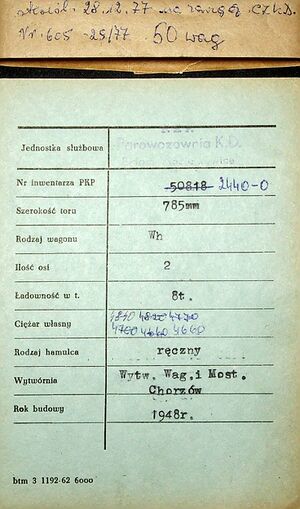 28.12.77 na
Nr. 605-25/77 50 wag
P.K.P.
Parowozownia K.D.
Jednostka służbowa
Nr inwentarza PKP 50818 2440-0
Szerokość toru 785mm
Rodzaj wagonu Wh
Ilość osi 2
Ładowność w t. 8t.
Ciężar własny
4700 4660 4660
Rodzaj hamulca ręczny
Wytwórnia Wytw. Wag.i Most.
Chorzów
Rok budowy 1948r.
btm 3 1192-62 6000